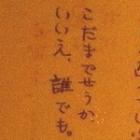 こだまでせうか
いいえ、誰でも。